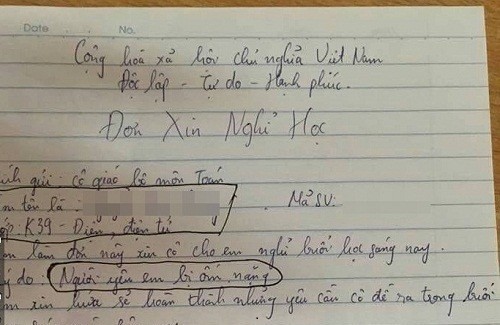 Date No.
Cộng hoà xã hôi chủ nghĩa Việt Nam
Độc lập - tự do - Hạnh phúc.
Đơn Xin Nghỉ Học
ính gửi: cô giáo bộ môn Toán
m tên là: Mã SV:
ớp: K39 - Điện, điện tử
m làm đơn này xin cô cho em nghỉ buổi học sáng nay.
ý do: Người yêu em bị ốm nặng
m xin hứa sẽ hoàn thành những yêu cầu cô đề ra trong buổi